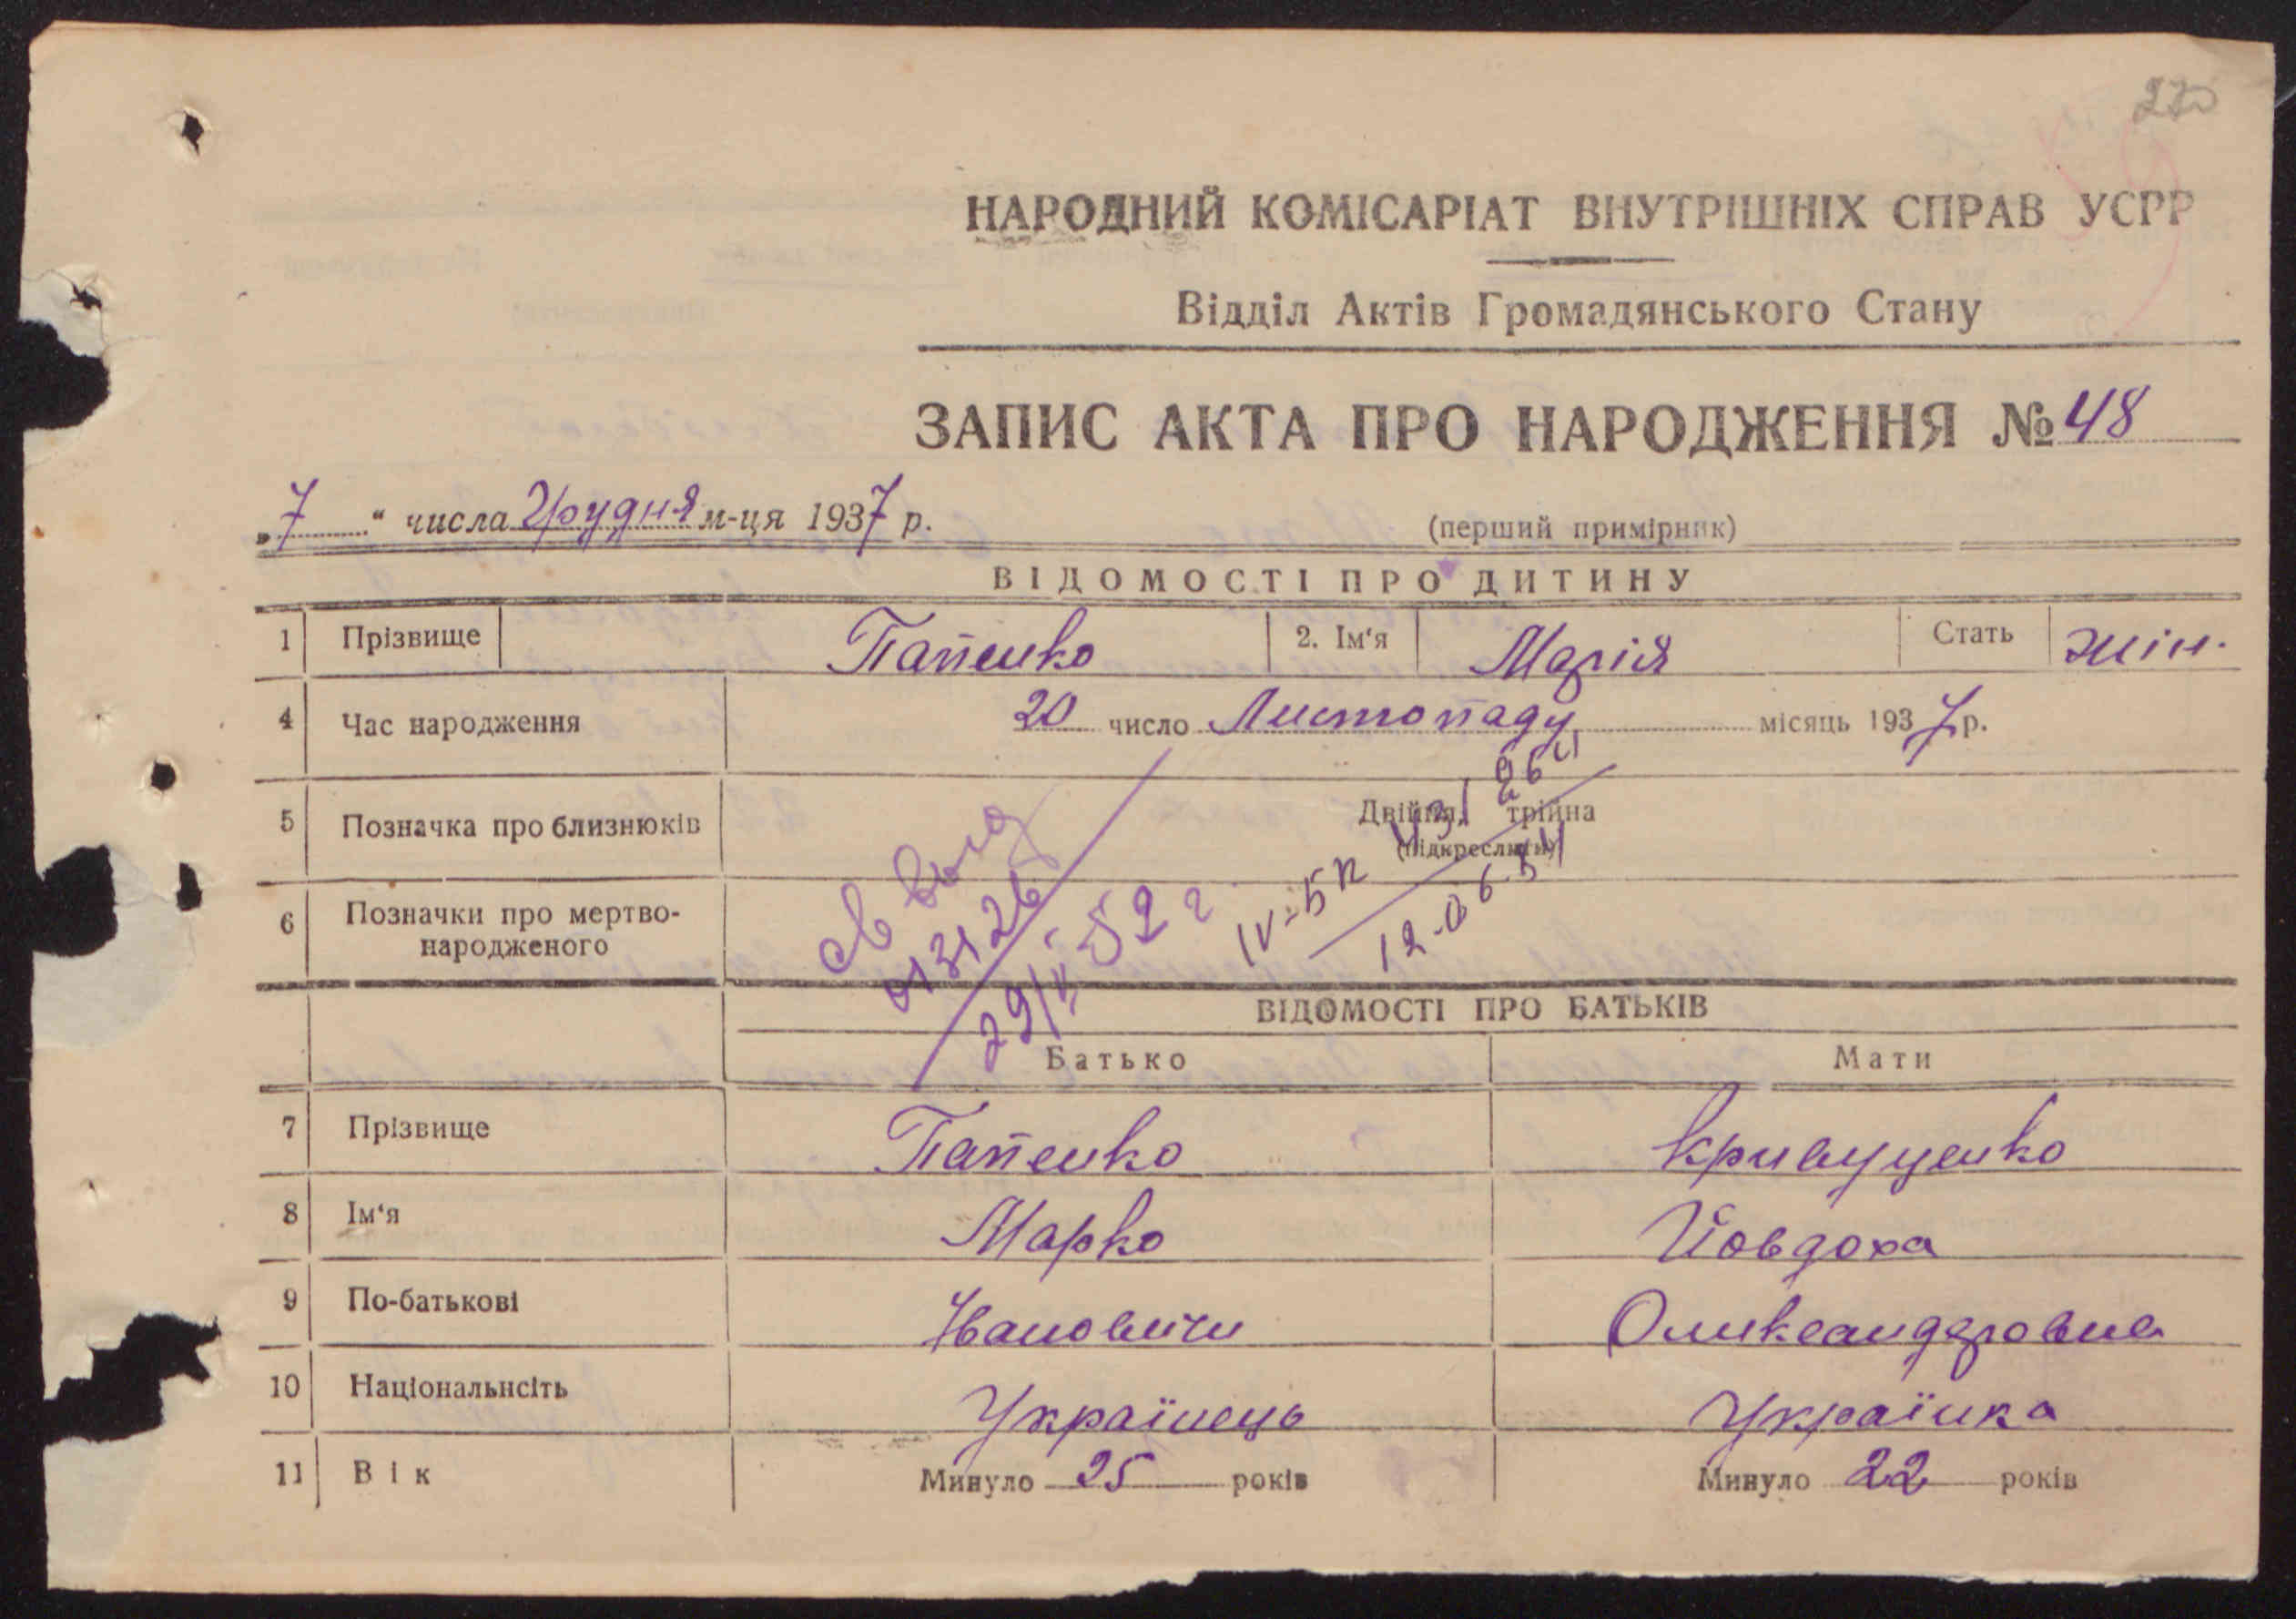 270
НАРОДНИЙ КОМІСАРІАТ ВНУТРІШНІХ СПРАВ УСРР
Відділ Актів Громадянського Стану
ЗАПИС АКТА ПРО НАРОДЖЕННЯ № 48
„7“ числа Грудня м-ця 1937 р.
(перший примірник)
ВІДОМОСТІ ПРО ДИТИНУ
1 Прізвище Папенко 2. Ім‘я Марія Стать жін.
4 Час народження 20 число Листопаду місяць 1937 р.
5 Позначка про близнюків Двійня, трійна
(підкреслити)
6 Позначки про мертво-
народженого
св выд
013126
29/IV-52 г
IV-БП 431264
12.06.54
ВІДОМОСТІ ПРО БАТЬКІВ
Батько Мати
7 Прізвище Папенко Кривуценко
8 Ім‘я Марко Йовдоха
9 По-батькові Іванович Олександровна
10 Національнсіть Українець Українка
11 Вік Минуло 25 років Минуло 22 років